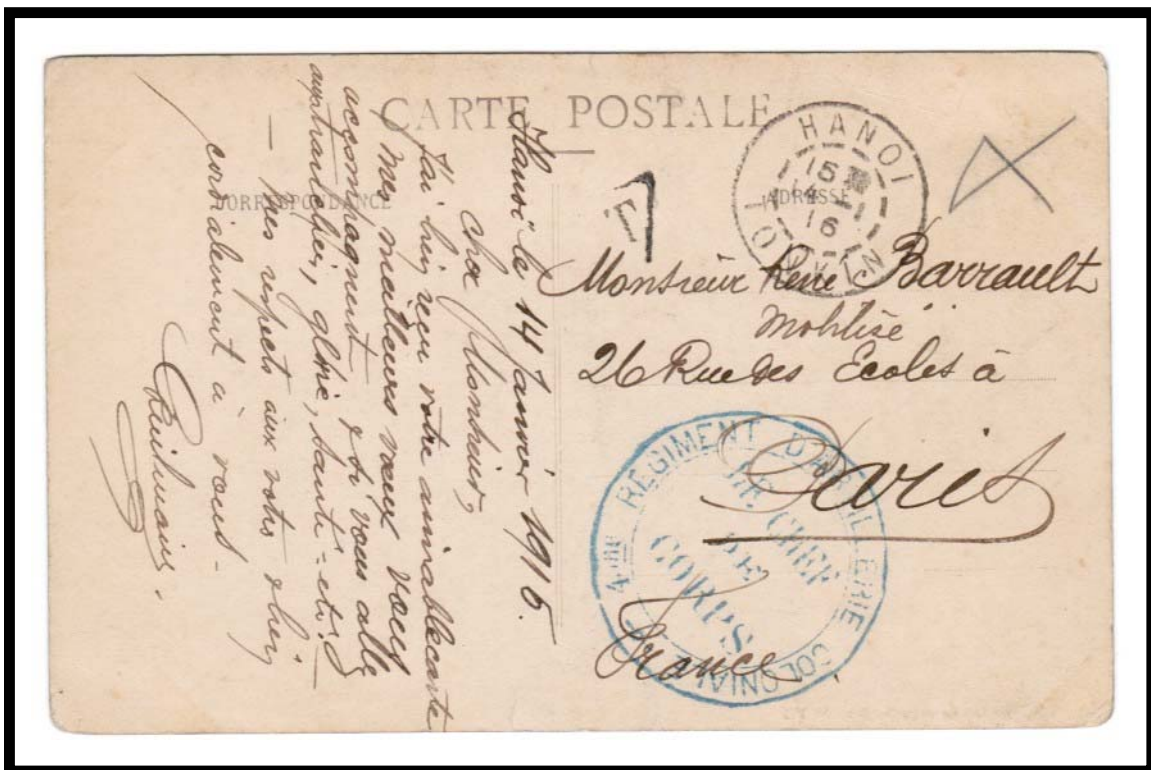 CARTE POSTALE
CORRESPONDANCE
ADRESSE
Hanoi le 14 Janvier 1916.
Cher Monsieur,
J'ai bien reçu votre aimable carte
mes meilleurs vœux vous
accompagnent & si vous allez
aux tranchées, gloire, santé - etc.
— Mes respects aux votres &
cordialement à vous -
T
HANOI
15
16
TONKIN
Monsieur René Barrault
Mobilisé
26 Rue des Ecoles à
Paris
France
4ME REGIMENT D'ARTILLERIE COLONIALE
LE CHEF
DE
CORPS